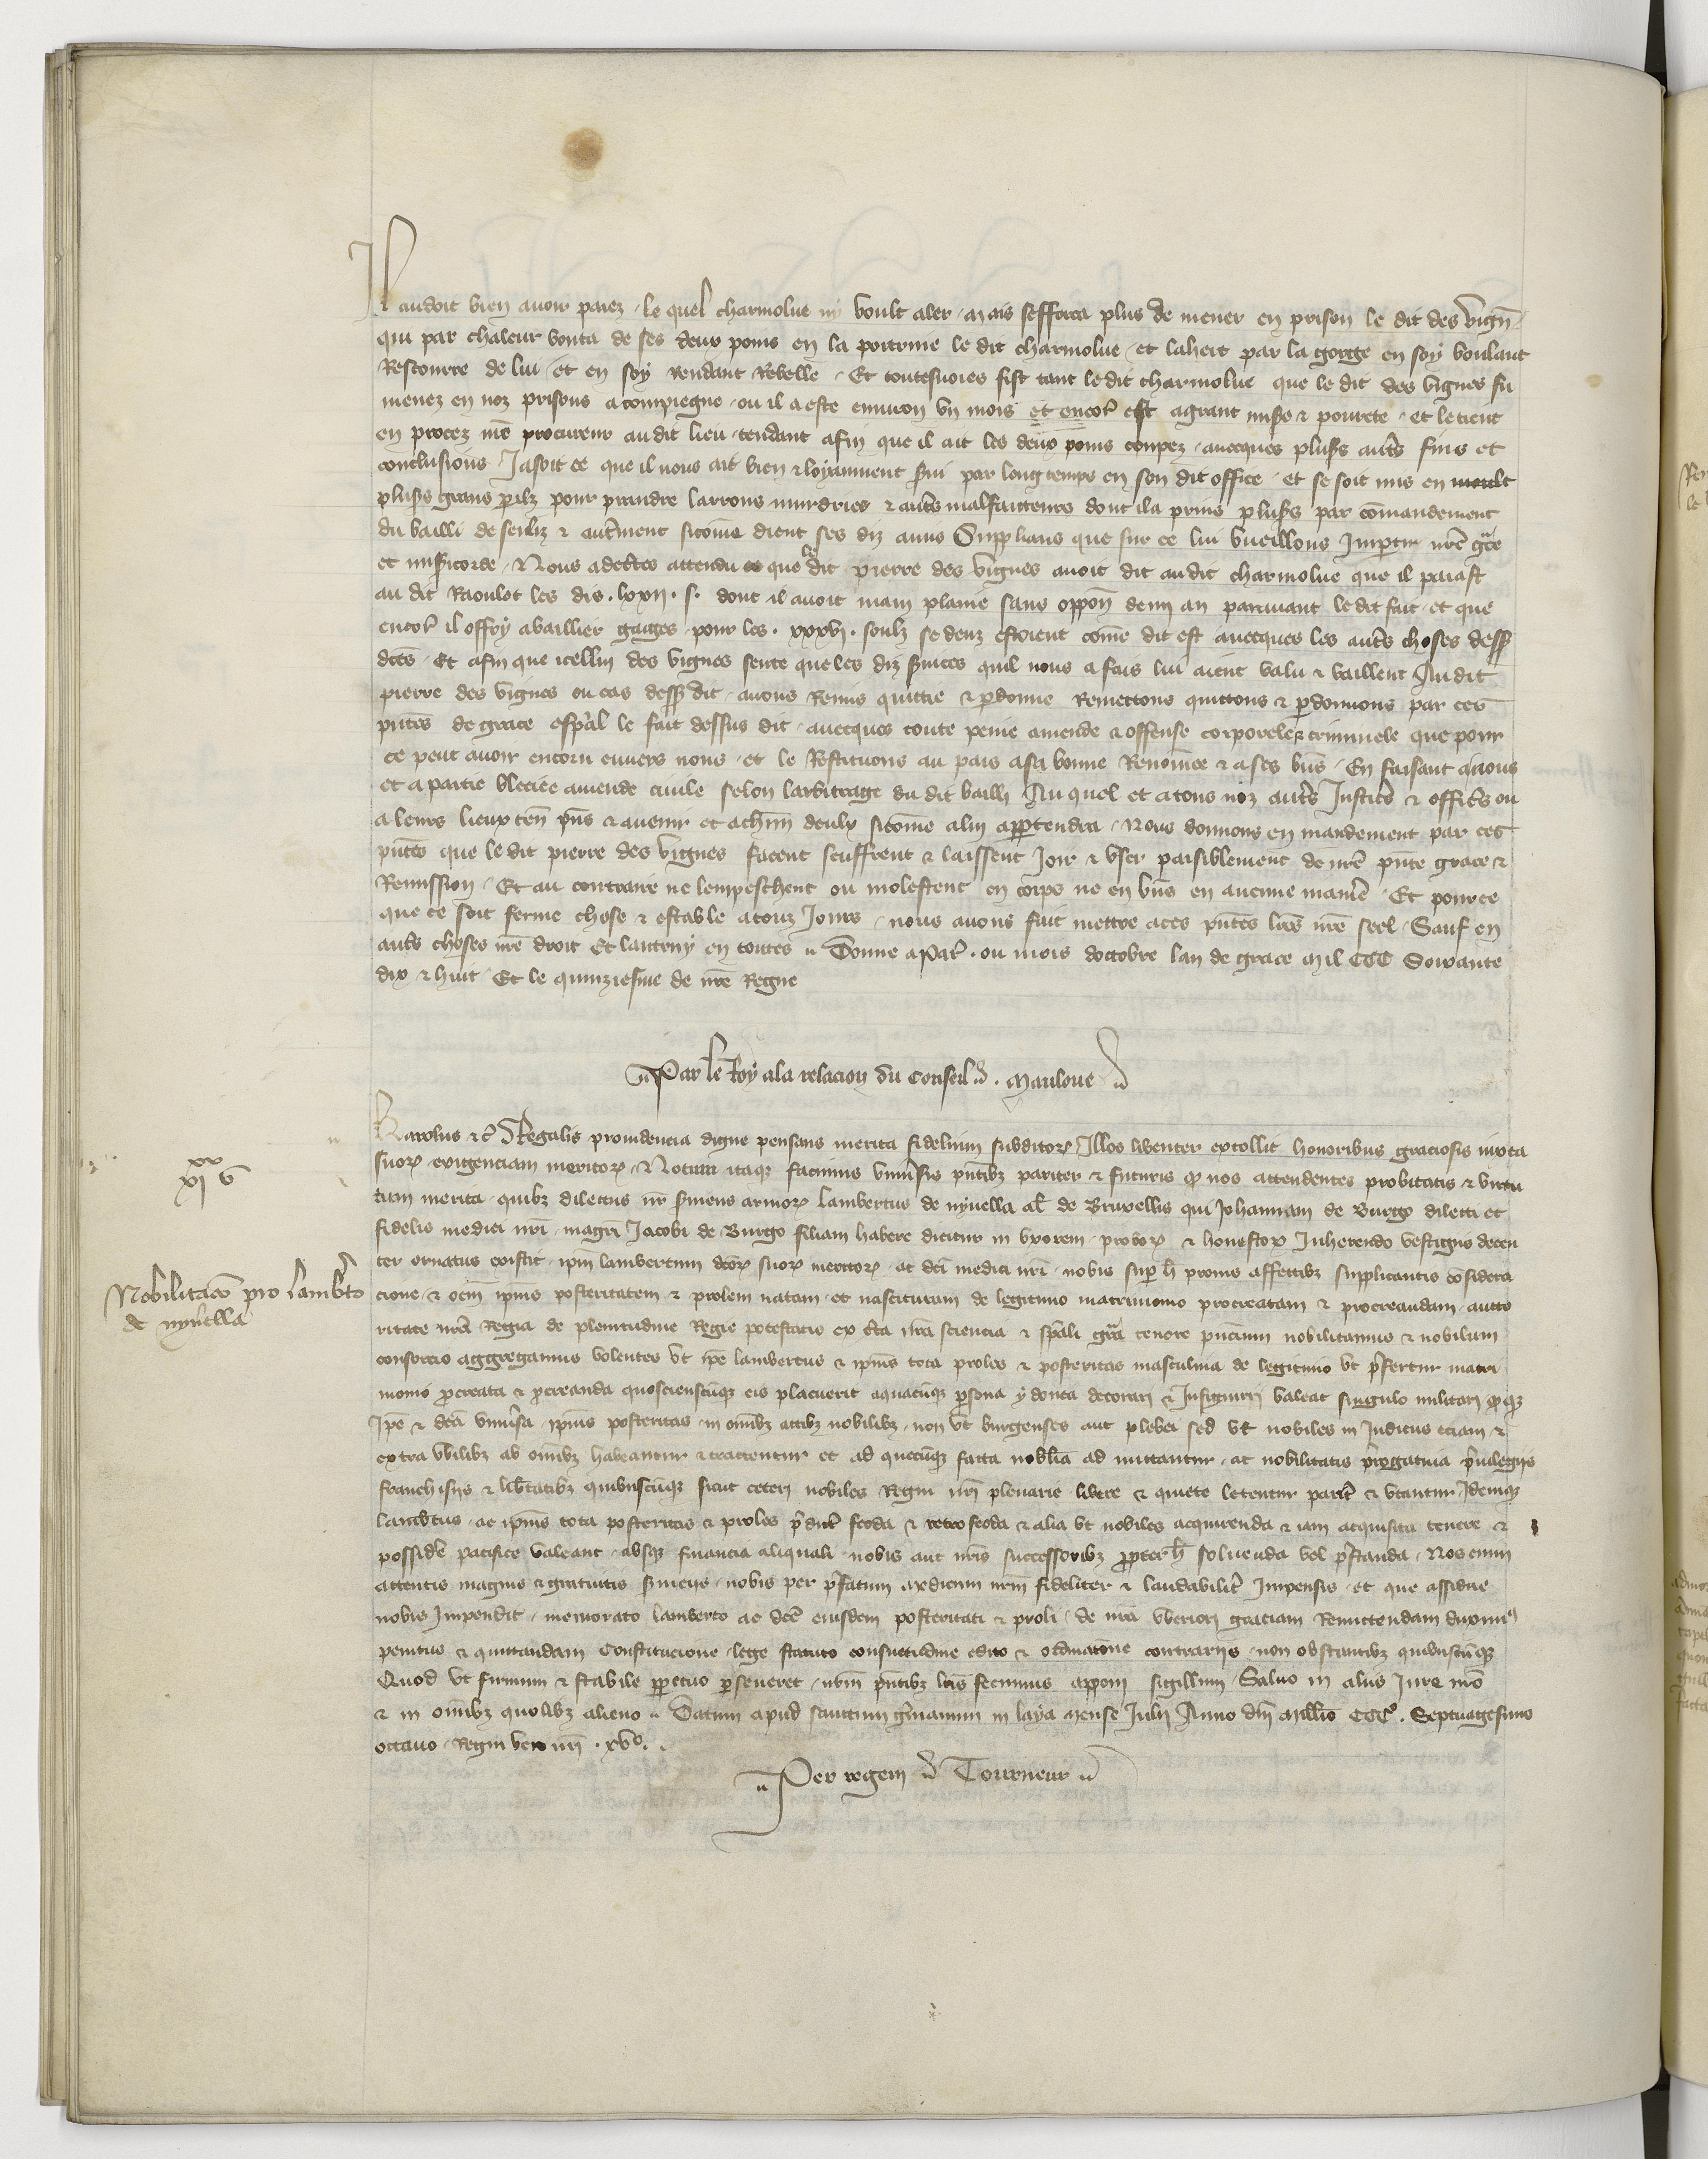 Il cuidoit bien avoir paiez . le quel charmolue ny voult aler . mais sefforca plus de mener en prison le dit des vign̄
qui par chaleur bouta de ses deux poins en la poitrine le dit charmolue . et lahert par la gorge en soy voulant
Rescourre de lui . et en soy rendant Rebelle . Et toutesvoies fist tant ledit charmolue que le dit des vignes fu
menez en noz prisons a compiegne . ou il a este environ vn mois et encor̄ est a grant mis̄e & povrete . et le tient
en procez nr̄e procureur audit lieu . tendant afin que il ait les deux poins coupez . avecques plus̄s aut̄s fins et
conclusions . Jasoit ce que il nous ait bien & loyaument s̄vi par long temps en son dit office . et se soit mis en moult
plus̄s grans p̄ilz pour prandre larrons murdries & aut̄s malfaitteurs dont il a prins plus̄s par com̄andement
du bailli de senliz & aut̄ment sicom̄e dient ses diz amis Supplians que sur ce lui vueillons Imp̄tir nr̄e gr̄ce
et mis̄icorde . Nous adec̄tes attendu que le dit pierre des vignes avoit dit audit charmolue que il paiast
au dit Raoulot les dis . lxxii . s̄ . dont il avoit main plaine sans oppon̄ demi an paravant ledit fait . et que
encor̄ il offry a baillier gaiges . pour les . xxxvi . soulz se deuz estoient com̄e dit est avecques les aut̄s choses dess̄
dc̄es . Et afin que icellui des vignes sente que les diz s̄vices quil nous a fais lui aient valu & vaillent Audit
pierre des vignes ou cas dess̄ dit . avons Remis quittie & p̄donne Remettons quittons & p̄donnons par ces
pn̄tes de grace esp̄al le fait dessus dit . avecques toute peine amende & offense corporele & criminele que pour
ce peut avoir encoru envers nous . et le Restituons au pais a sa bonne Renom̄ee & a ses biens . En faisant a nous
et a partie bleciee amende civile selon larbitrage du dit bailli Au quel et a touz noz aut̄s Justic̄s & offic̄s ou
a leurs lieux ten̄ pn̄s & avenir et a ch̄un deulx sicom̄e a lui app̄tendra . Nous donnons en mandement par ces
pn̄tes que le dit pierre des vignes facent seuffrent & laissent Joir & vser paisiblement de nr̄e pn̄te grace &
Remission . Et au contraire ne lempeschent ou molestent en corps ne en biens en aucune manie᷒ . Et pour ce
que ce soit ferme chose & estable a touz Jours . nous avons fait mettre a ces pn̄tes lr̄es nr̄e seel . Sauf en
aut̄s choses nr̄e droit Et lautruy en toutes . Donne a Par̄ . ou mois doctobre lan de grace mil CCC Soixante
dix & huit . Et le quinziesme de nr̄e Regne
Par le Roy a la relacion du Conseil . Mauloue
Karolus &c̄ Regalis providencia digne pensans merita fidelium subditor̄ Illos libenter extollit honoribus graciosis iuxta
suor̄ exigenciam meritor̄ . Notum itaq̄ facimus vniv̄sis pn̄tib᷒ pariter & futuris q̄ nos attendentes probitatis & virtu
tum merita . quib᷒ dilectus nr̄ s̄viens armor̄ Lambertus de nyvella al̄ de Bruxellis qui Johannam de Burgo dilecti et
fidelis medici nr̄i . magr̄i Jacobi de Burgo filiam habere dicitur in vxorem . probor̄ & honestor̄ Inherendo vestigiis decen
ter ornatus existit . ip̄m lambertum dc̄or̄ suor̄ meritor̄ . ac dc̄i medici nr̄i . nobis sup̄ h̄ pronis affectib᷒ supplicantis consid̄era
cione . & oc̄m ipius posteritatem & prolem natam . et nascituram de legitimo matrimonio procreatam & procreandam . aucto
ritate nr̄a Regia de plenitudine Regie potestatis ex c̄ta nr̄a sciencia & sp̄ali gr̄a tenore pn̄cium nobilitamus & nobilium
consorcio aggregamus volentes vt ip̄e lambertus & ipīus tota proles & posteritas masculina de legitimo vt p̄fertur matri
monio p̄creata & p̄creanda quocienscūq̄ eis placuerit a quacūq̄ p̄sona ydonea decorari & Insigniri valeat singulo militari q̄q̄
Ip̄e & dc̄a vniv̄sa ipīus posteritas . in om̄ib᷒ actib᷒ nobilib᷒ . non vt burgenses aut plebei sed vt nobiles in Judiciis eciam &
extra vbilib᷒ ab om̄ib᷒ habeantur & tractentur et ad quecūq̄ facta nobilia ad mittantur . ac nobilitatis p̄rogativa p̄vilegiis
franchisiis & lib̄tatib᷒ quibuscūq̄ sicut ceteri nobiles Regni nr̄i plenarie libere & quiete letentur parit̄ & vtantur Idemq̄
lamb̄tus . ac ipīus tota posteritas & proles p̄dict̄ feoda & retrofeoda & alia vt nobiles acquirenda & iam acquisita tenere &
possid̄e pacifice valeant . absq̄ financia aliquali . nobis aut nr̄is successorib᷒ p̄pterh̄ solvenda vel p̄standa . Nos enim
attentis magnis & gratuitis s̄viciis . nobis per p̄fatum medicum nr̄m fideliter & laudabilit̄ Impensis . et que assidue
nobis Impendit . memorato lamberto ac dc̄e eiusdem posteritati & proli . de nr̄a vberiori graciam Remittendam duxim᷒
penitus & quittandam Constitucione . lege statuto consuetudine edito & ordinac̄one contrariis . non obstantib᷒ quibuscūq̄
Quod vt firmum & stabile p̄petuo p̄severet . nr̄m pn̄tib᷒ lr̄is fecimus apponi sigillum . Salvo in aliis Jure nr̄o
& in om̄ib᷒ quolib᷒ alieno . Datum apud sanctum ger̄manum in laya mense Julii Anno dn̄i Mill̄io CCC° . Septuagesimo
octavo . Regni vero nr̄i . xv° .
Per regem . Tourneur
Nobilitac̄o pro lamb̄to
de nyvella